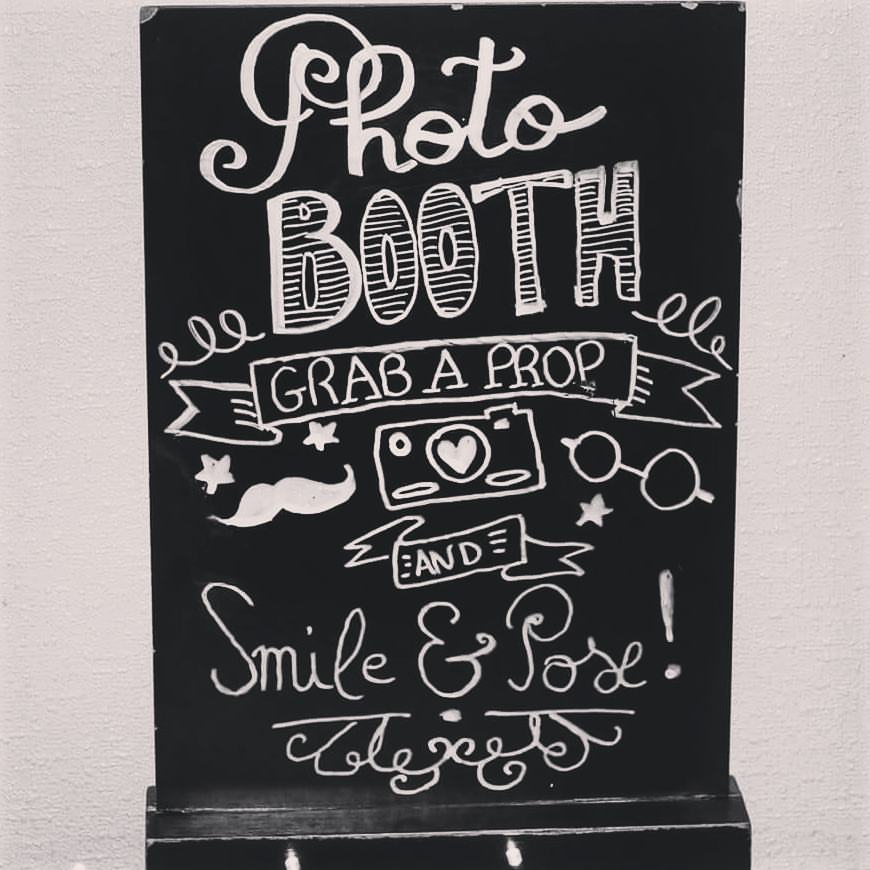 Photo
BOOTH
GRAB A PROP
AND
Smile & Pose!